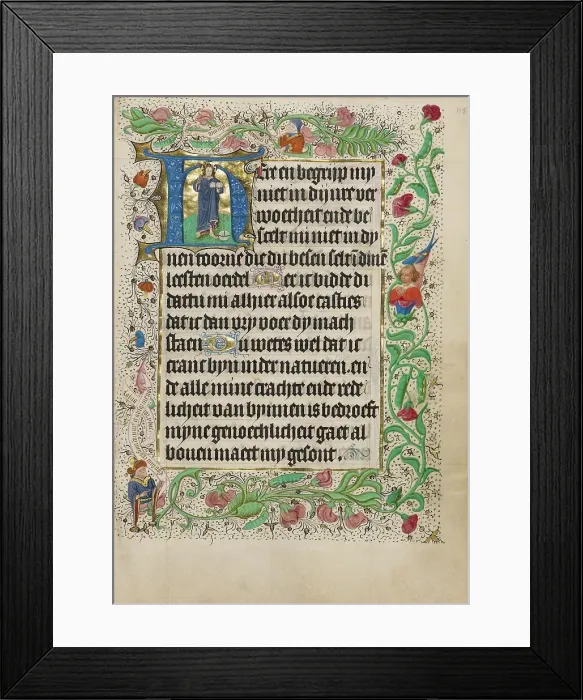 Here en begrijp my
niet in dijnre ver
woetheit ende be
scelt mi niet in dy
nen toorne die du besen selt
leesten oerdel Mer ic bidde di
dattu mi alhier alsoe casties
dat ic dan vry voer dy mach
staen Du weets wel dat ic
cranc byn in der natueren. en
de alle mine crachte ende rede
licheit van bynnen is bedroeft
myne genoechlicheit gaet al
bouen maect my gesont.